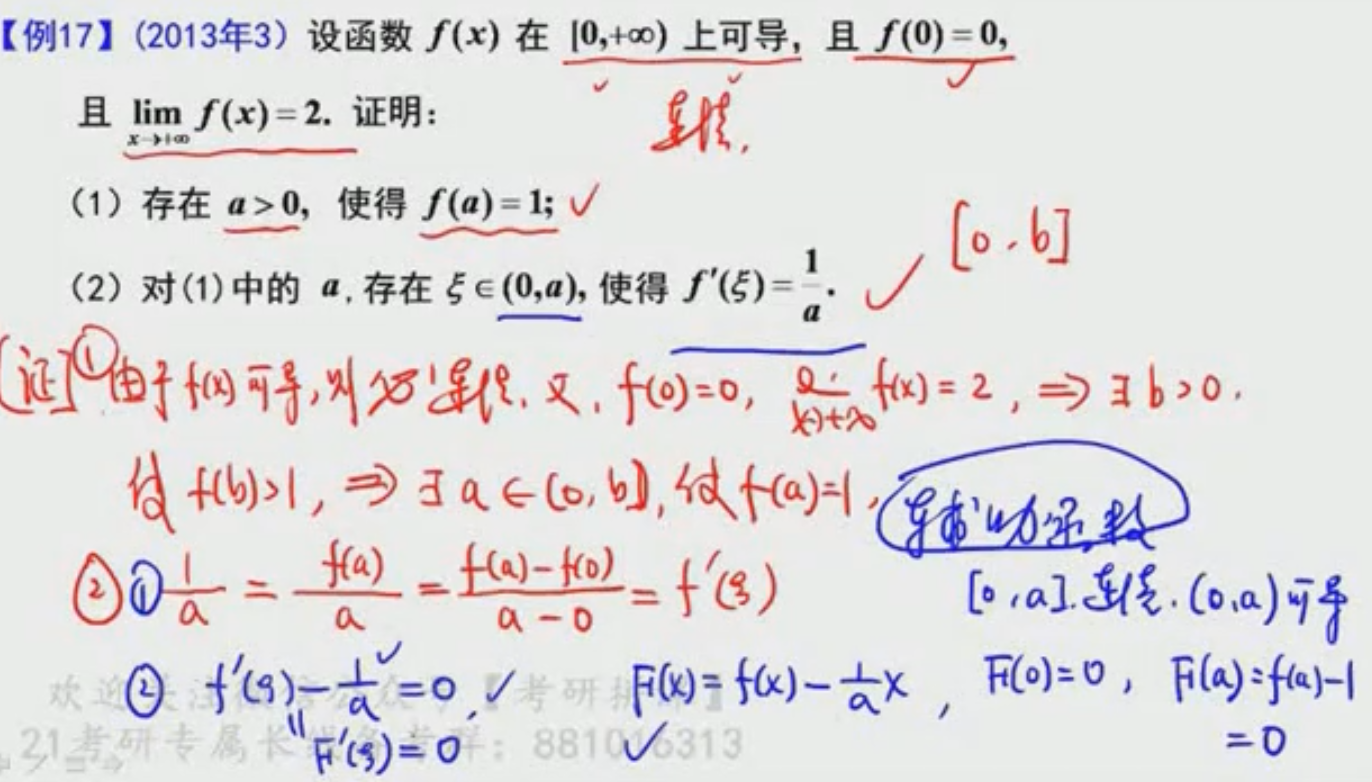 【例17】(2013年3) 设函数 f(x) 在 [0,+∞) 上可导, 且 f(0)=0,
且 lim f(x)=2. 证明:
x→+∞
连续.
(1) 存在 a>0, 使得 f(a)=1; ✓
[0,b]
(2) 对(1)中的 a,存在 ξ∈(0,a), 使得 f′(ξ)=1/a. ✓
[证]① 由于f(x)可导,则必连续. 又. f(0)=0, lim x→+∞ f(x)=2, ⇒ ∃b>0.
使 f(b)>1, ⇒ ∃a∈(0,b], 使f(a)=1,
辅助函数
② ① 1/a = f(a)/a = (f(a)-f(0))/(a-0) = f′(ξ)
[0,a].连续.(0,a)可导
② f′(ξ)-1/a=0, ✓ F(x)=f(x)-1/a x, F(0)=0, F(a)=f(a)-1
=0
" F′(ξ)=0 ✓
欢迎关注 【考研
21考研专属 群: 881016313